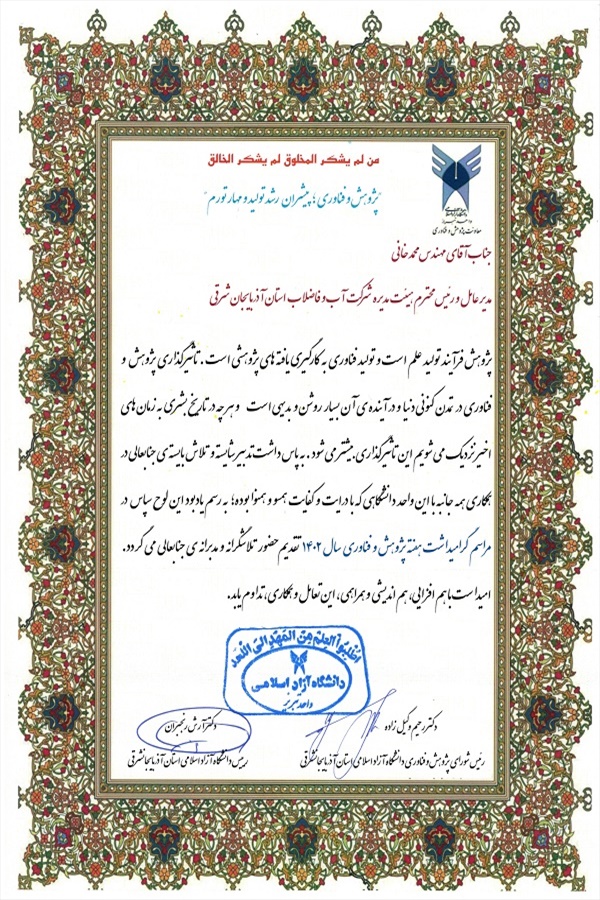 من لم یشکر المخلوق لم یشکر الخالق
"پژوهش و فناوری؛ پیشران رشد تولید و مهار تورم"
دانشگاه آزاد اسلامی
معاونت پژوهش و فناوری
جناب آقای مهندس محمدخانی
مدیرعامل و رئیس محترم هیئت مدیره شرکت آب و فاضلاب استان آذربایجان شرقی
پژوهش فرآیند تولید علم است و تولید فناوری به کارگیری یافته های پژوهشی است. تاثیرگذاری پژوهش و
فناوری در تمدن کنونی دنیا و در آینده ی آن بسیار روشن و بدیهی است و هرچه در تاریخ بشری به زمان های
اخیر نزدیک می شویم این تاثیرگذاری بیشتر می شود. به پاس داشت تدبیر شایسته و تلاش بایسته ی جنابعالی در
همکاری همه جانبه با این واحد دانشگاهی که با درایت و کفایت همسو و همنوا بوده؛ به رسم یادبود این لوح سپاس در
مراسم گرامیداشت هفته پژوهش و فناوری سال ۱۴۰۲ تقدیم حضور تلاشگرانه و مدبرانه ی جنابعالی می گردد.
امید است با هم افزایی، هم اندیشی و همراهی، این تعامل و همکاری، تداوم یابد.
اطلبوا العلم من المهد الی اللحد
دانشگاه آزاد اسلامی
واحد تبریز
دکتر رحیم وکیل زاده
رئیس شورای پژوهش و فناوری دانشگاه آزاد اسلامی استان آذربایجانشرقی
دکتر آرش رنجبران
رییس دانشگاه آزاد اسلامی استان آذربایجانشرقی